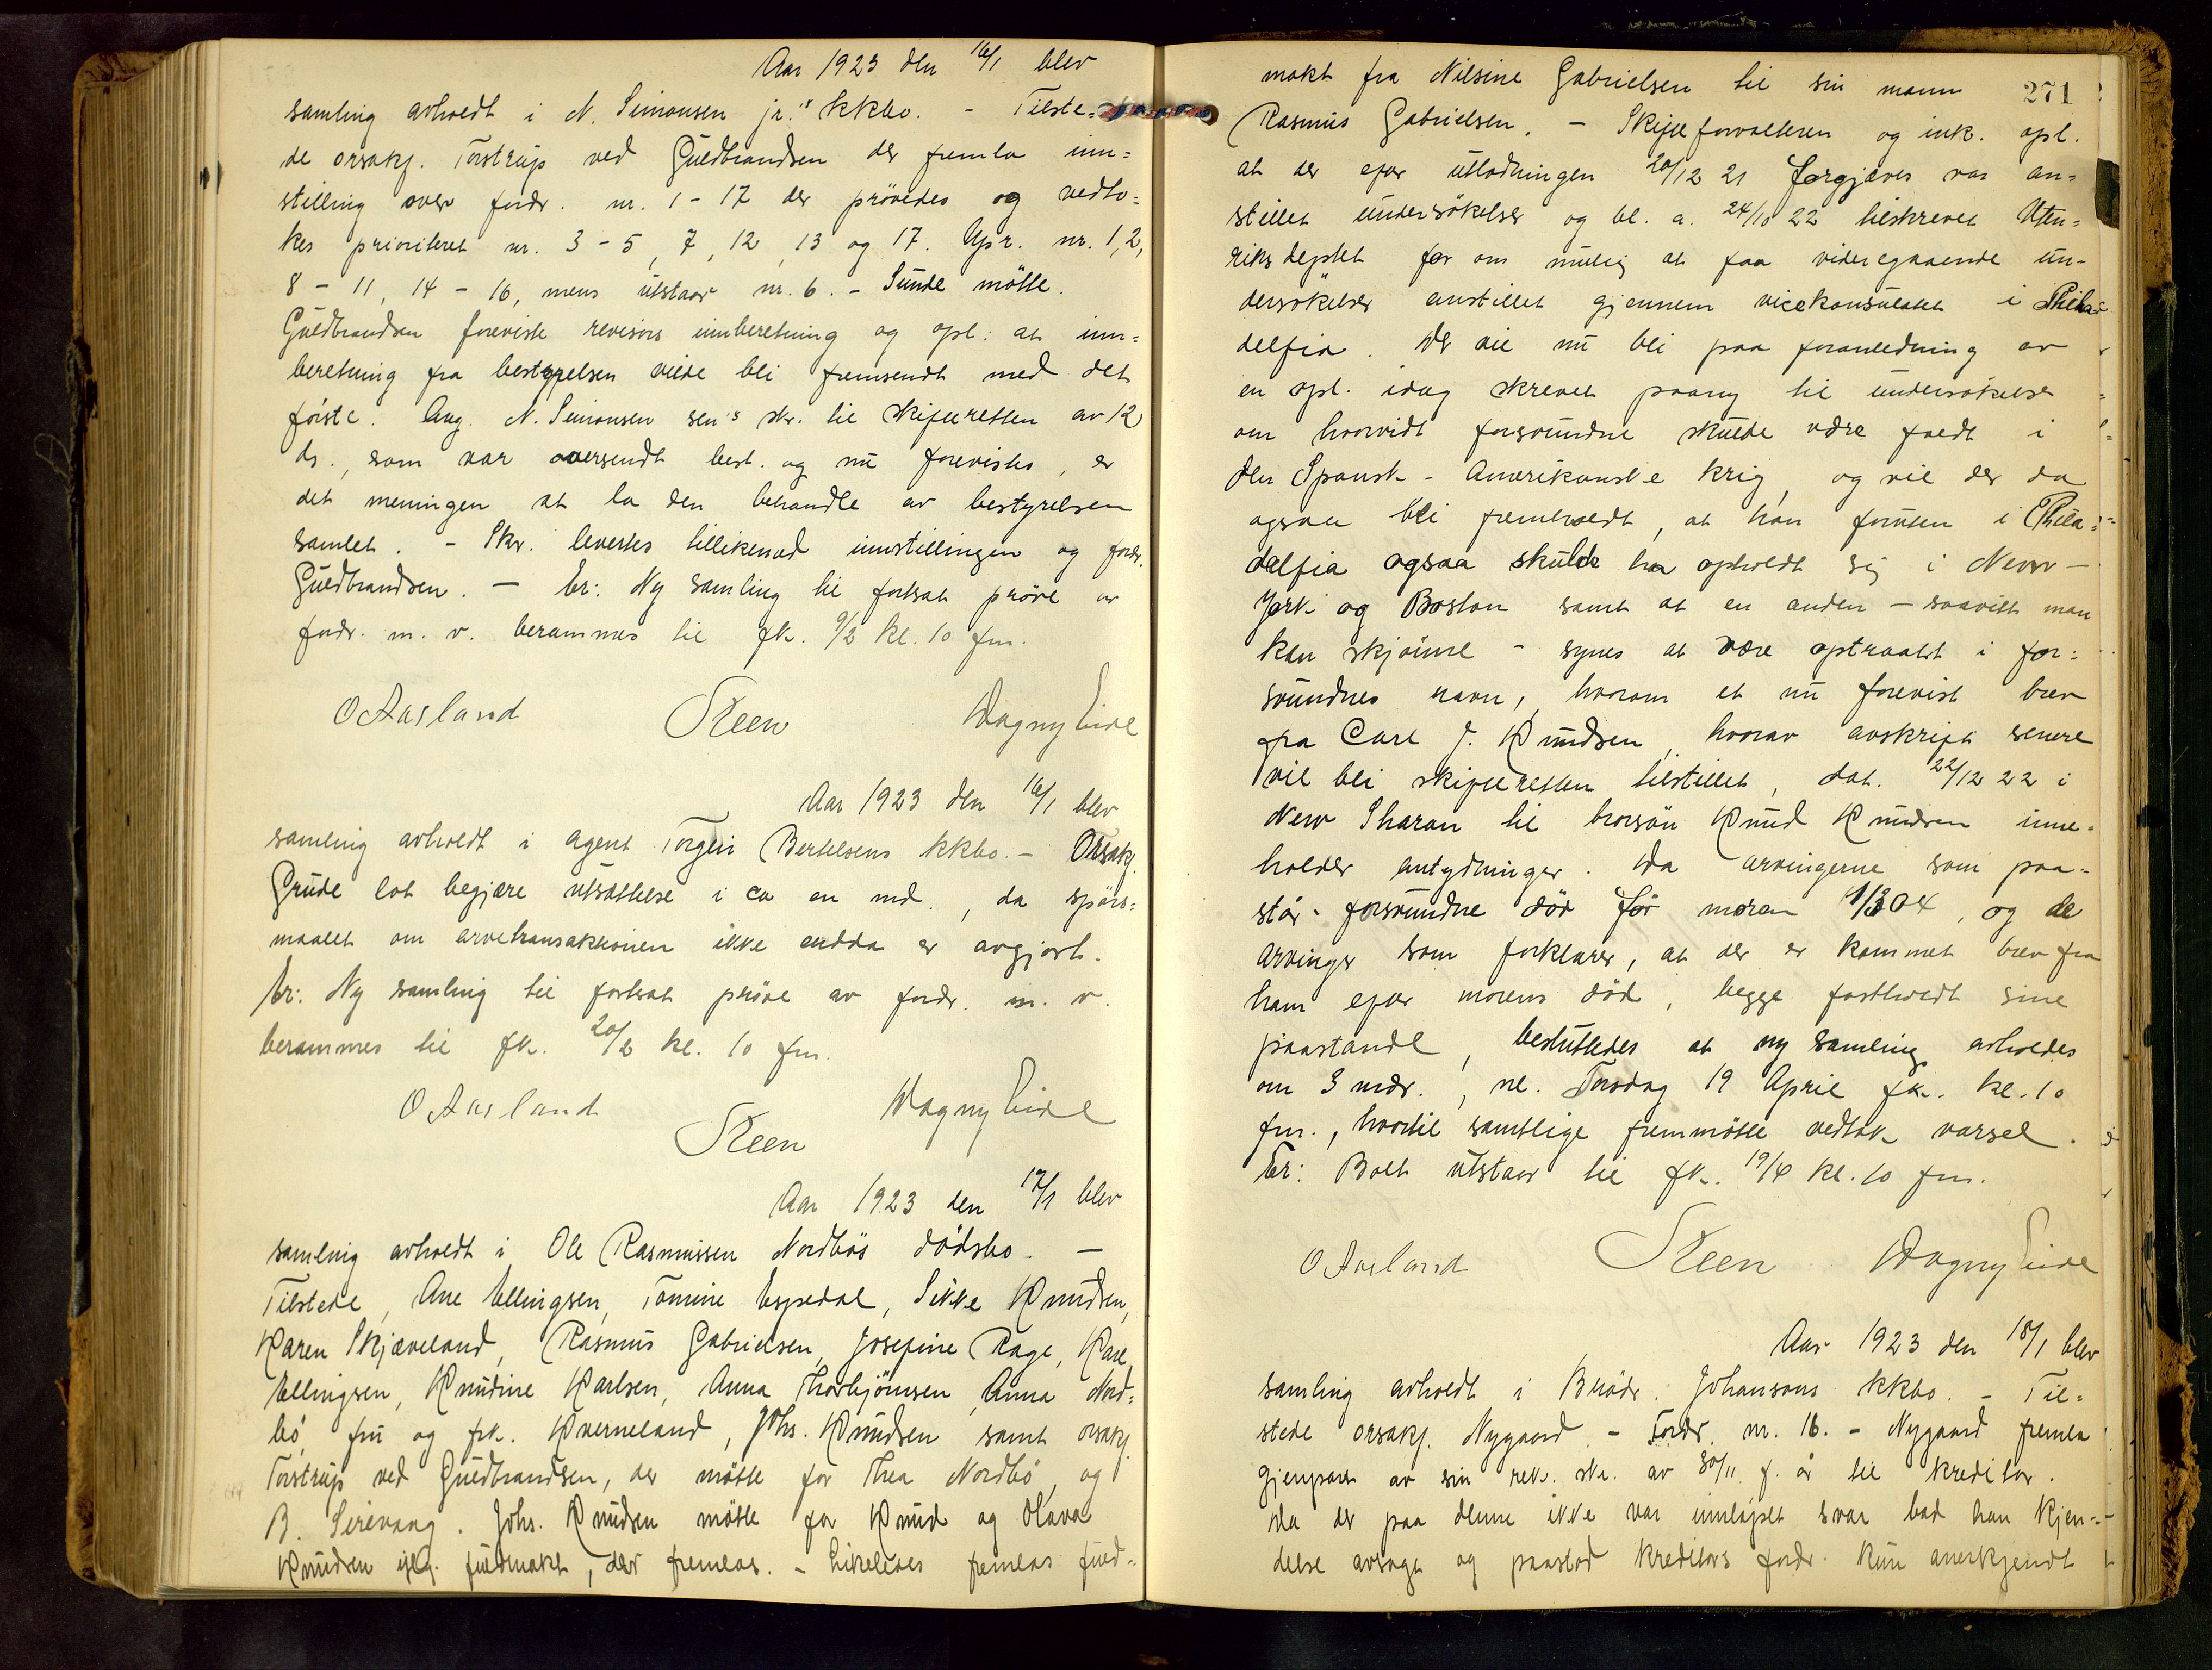 Aar 1923 den 16/1 blev
samling avholdt i N. Simonsen jr.'s kkbo. - Tilste=
de orsakf. Torstrup ved Guldbrandsen der fremla inn=
stilling over fordr. nr. 1 - 17 der prövedes og vedto=
kes prioriteret nr. 3 - 5, 7, 12, 13 og 17. Upr. nr. 1, 2,
8 - 11, 14 - 16, mens utstaar nr. 6. - Sunde mötte.
Guldbrandsen foreviste revisors innberetning og opl. at inn=
beretning fra bestyrelsen vilde bli fremsendt med det
förste. Ang. N. Simonsen sen's skr. til skifteretten av 12
ds., som var oversendt best. og nu forevistes, er
det meningen at la den behandle av bestyrelsen
samlet. - Skr. levertes tillikemed innstillingen og fordr.
Guldbrandsen. - Er: Ny samling til fortsat pröve av
fordr. m. v. berammes til fk. 9/2 kl. 10 fm.
O Aasland Steen Dagny Eide
Aar 1923 den 16/1 blev
samling avholdt i agent Torgeir Bertelsens kkbo. - Orsakf.
Grude lot begjære utsættelse i ca en md., da spörs=
maalet om arvetransaktionen ikke endda er avgjort.
Er: Ny samling til fortsat pröve av fordr. m. v.
berammes til fk. 20/2 kl. 10 fm.
O Aasland Steen Dagny Eide
Aar 1923 den 17/1 blev
samling avholdt i Ole Rasmussen Nordbös dödsbo. -
Tilstede, Ane Ellingsen, Tomine Espedal, Sikke Knudsen,
Karen Skjæveland, Rasmus Gabrielsen, Josefine Rage, Karl
Ellingsen, Knudine Karlsen, Anna Thorbjörnsen, Anna Nord=
bö, fru og frk. Kverneland, Johs. Knudsen samt orsakf.
Torstrup ved Guldbrandsen, der mötte for Thea Nordbö og
B. Sirevaag. Johs. Knudsen mötte for Knud og Olava
Knudsen iflg. fuldmakt, der fremlas. - Likeledes fremlas fuld=
271
makt fra Nilsine Gabrielsen til sin mann
Rasmus Gabrielsen. - Skifteforvalteren og ink. opl.
at der efter utlodningen 20/12 21 forgjæves var an=
stillet undersökelser og bl. a. 24/10 22 tilskrevet Uten=
riksdeptet for om mulig at faa videregaaende un=
dersökelser anstillet gjennem vicekonsulatet i Phila=
delfia. Der vil nu bli paa foranledning av
en opl. idag skrevet paany til undersökelse
om hvorvidt forsvundne skulde være faldt i
den Spansk - Amerikanske krig, og vil der da
ogsaa bli fremholdt, at han foruten i Phila=
delfia ogsaa skulde ha opholdt sig i New -
York og Boston samt at en anden - saavidt man
kan skjönne - synes at være optraadt i for=
svundnes navn, hvorom et nu forevist brev
fra Carl J. Knudsen, hvorav avskrift senere
vil bli skifteretten tilstillet, dat. 22/12 22 i
New Sharon til brorsön Knud Knudsen inne=
holder antydninger. Da arvingerne som paa=
står forsvundne död för moren 1/3 04, og de
arvinger som forklarer, at der er kommet brev fra
ham efter morens död, begge fastholdt sine
paastande, besluttedes at ny samling avholdes
om 3 mdr., nl. Torsdag 19 April fk. kl. 10
fm., hvortil samtlige fremmötte vedtok varsel.
Er: Boet utstaar til fk. 19/4 kl. 10 fm.
O Aasland Steen Dagny Eide
Aar 1923 den 18/1 blev
samling avholdt i Brödr. Johansons kkbo. - Til=
stede orsakf. Nygaard. - Fordr. nr. 16. - Nygaard fremla
gjenpart av sin rek. skr. av 30/11 f. år til kreditor.
Da der paa denne ikke var innlöpet svar bad han kjen=
delse avsagt og paastod kreditors fordr. kun anerkjendt